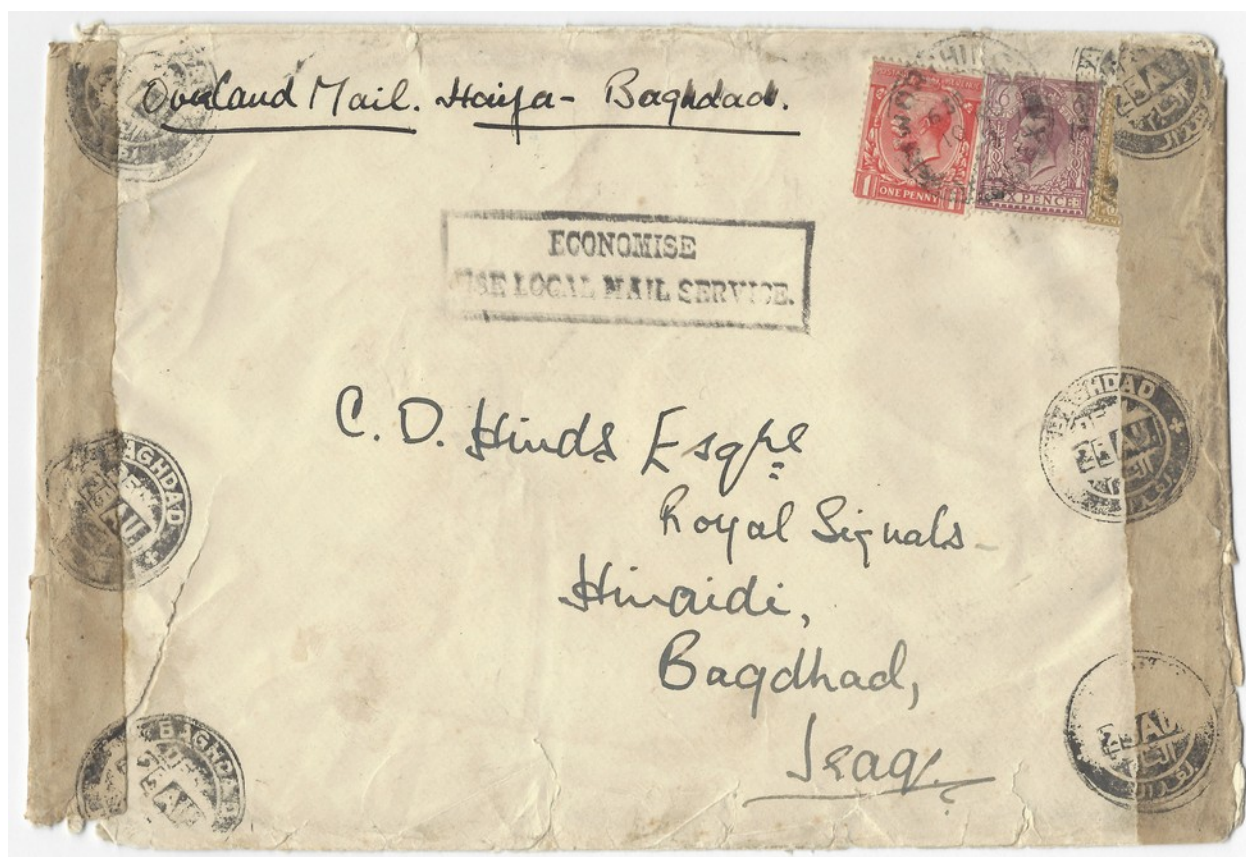 Overland Mail. Haifa - Baghdad.
ONE PENNY
ECONOMISE
USE LOCAL MAIL SERVICE.
C. D. Hinds Esqre
Royal Signals -
Hinaidi,
Bagdhad,
Iraq.
BAGHDAD
BAGHDAD
BAGHDAD